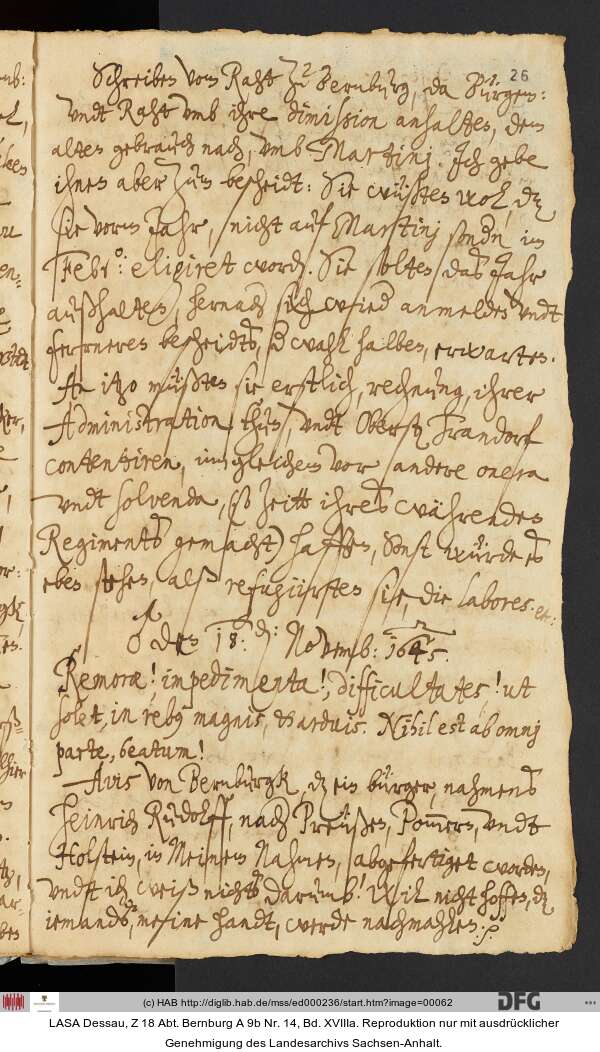 26
Schreiben vom Raht zu Bernburg, da Bürgem:
undt Raht umb ihre dimission anhalten, dem
alten gebrauch nach, umb Martinj. Ich gebe
ihnen aber zum bescheidt: Sie wüßten wol, dz
sie vorm Jahr, nicht auf Martinj sondern im
Febr: eligiret word. Sie solten das Jahr
außhalten, hernach sich wied anmelden undt
ferrneres bescheidts, d wahl halben, erwarten.
An itzo müßten sie erstlich, rechnung, ihrer
Administration thun, undt Oberst Trandorf
contentiren, imgleichen vor andere onera
undt solvenda, (so Zeitt ihres währenden
Regiments gemacht) hafften, Sonst würde es
eben stehen, alß refugiirften sie, die labores. et:
den 18: d: Novemb: 1645.
Remoræ! impedimenta!, difficultates! ut
solet, in reb9 magnis, & arduis. Nihil est ab omnj
parte, beatum!
Avis von Bernburgk, dz ein bürger, nahmens
Heinrich Rudolff, nach Preußen, Pommern, undt
Holstein, in Meinem Nahmen, abgefertiget worden,
undt ich weiß nichts darumb! Wil nicht hoffen, dz
iemands, meine handt, werde nachmahlen.
(c) HAB http://diglib.hab.de/mss/ed000236/start.htm?image=00062
DFG
LASA Dessau, Z 18 Abt. Bernburg A 9b Nr. 14, Bd. XVIIIa. Reproduktion nur mit ausdrücklicher
Genehmigung des Landesarchivs Sachsen-Anhalt.